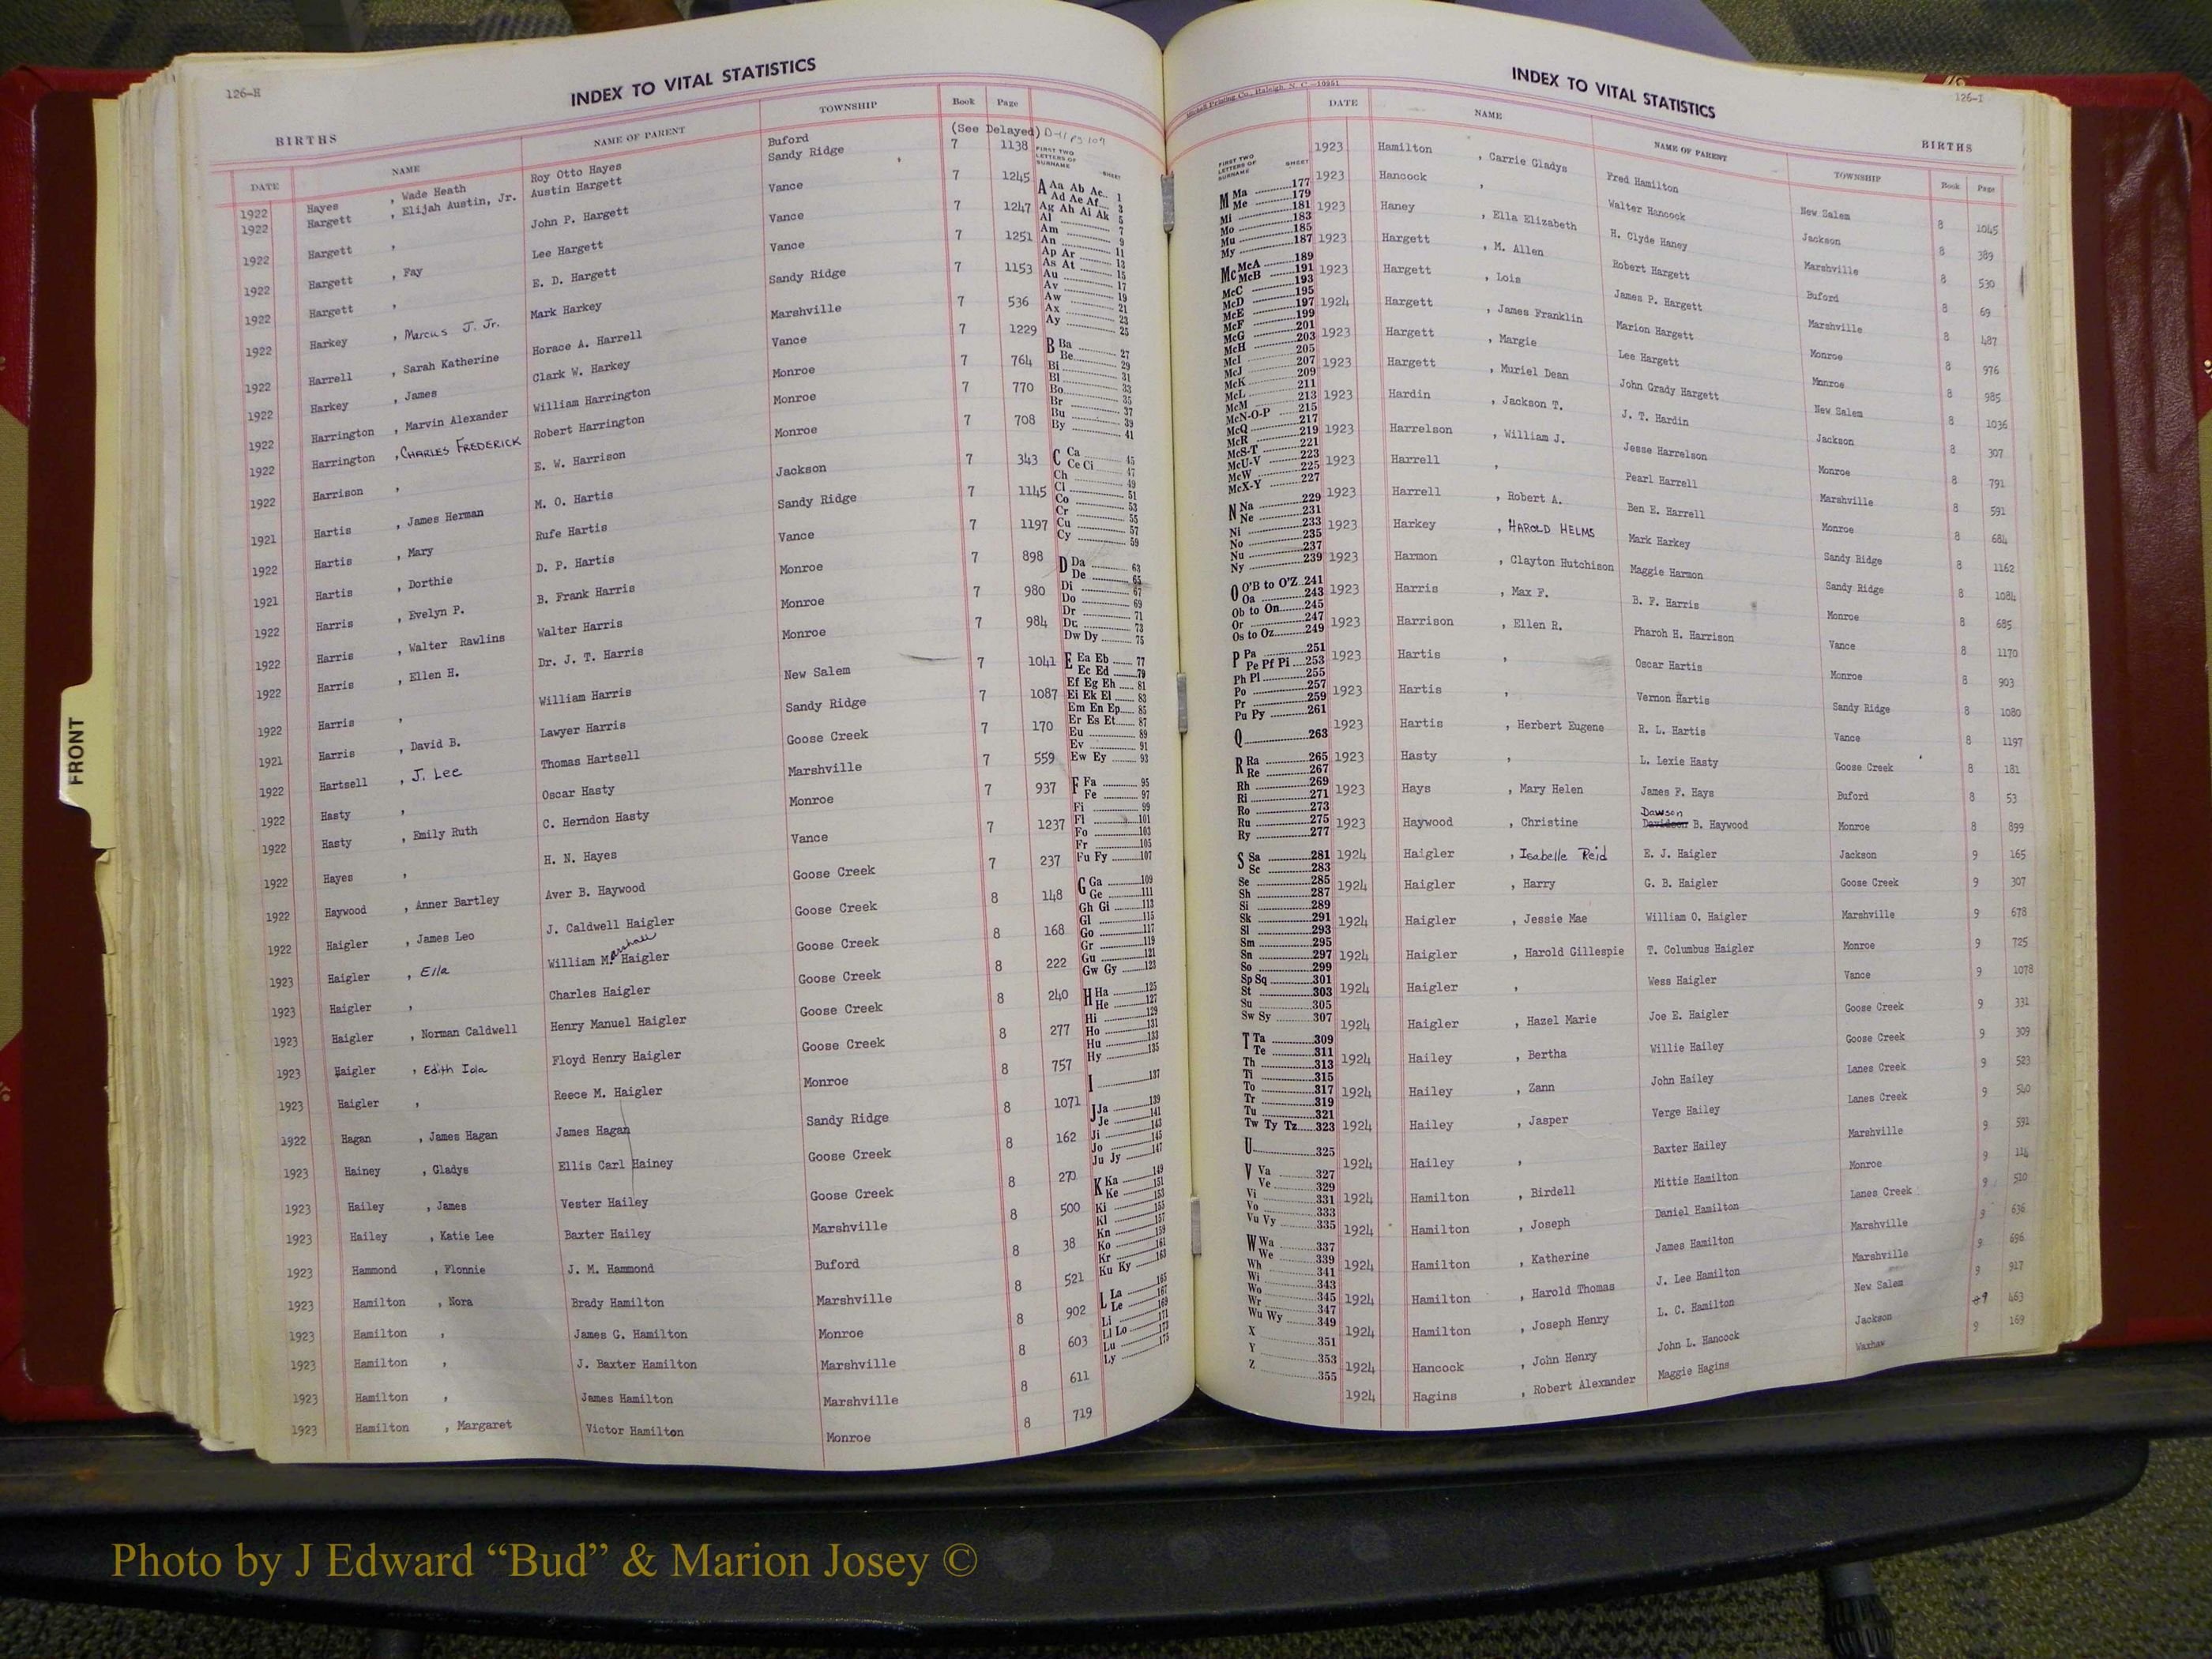 126-H
INDEX TO VITAL STATISTICS
BIRTHS
DATE NAME NAME OF PARENT TOWNSHIP Book Page
1922 Hayes , Wade Heath Roy Otto Hayes Buford (See Delayed) D-11 pg 107
1922 Hargett , Elijah Austin, Jr. Austin Hargett Sandy Ridge 7 1138
1922 Hargett , John P. Hargett Vance 7 1245
1922 Hargett , Fay Lee Hargett Vance 7 1247
1922 Hargett , E. D. Hargett Vance 7 1251
1922 Harkey , Marcus J. Jr. Mark Harkey Sandy Ridge 7 1153
1922 Harrell , Sarah Katherine Horace A. Harrell Marshville 7 536
1922 Harkey , James Clark W. Harkey Vance 7 1229
1922 Harrington , Marvin Alexander William Harrington Monroe 7 764
1922 Harrington , CHARLES FREDERICK Robert Harrington Monroe 7 770
1922 Harrison , E. W. Harrison Monroe 7 708
1921 Hartis , James Herman M. O. Hartis Jackson 7 343
1922 Hartis , Mary Rufe Hartis Sandy Ridge 7 1145
1921 Hartis , Dorthie D. P. Hartis Vance 7 1197
1922 Harris , Evelyn P. B. Frank Harris Monroe 7 898
1922 Harris , Walter Rawlins Walter Harris Monroe 7 980
1922 Harris , Ellen H. Dr. J. T. Harris Monroe 7 984
1922 Harris , William Harris New Salem 7 1041
1921 Harris , David B. Lawyer Harris Sandy Ridge 7 1087
1922 Hartsell , J. Lee Thomas Hartsell Goose Creek 7 170
1922 Hasty , Oscar Hasty Marshville 7 559
1922 Hasty , Emily Ruth C. Herndon Hasty Monroe 7 937
1922 Hayes , H. N. Hayes Vance 7 1237
1922 Haywood , Anner Bartley Aver B. Haywood Goose Creek 7 237
1922 Haigler , James Leo J. Caldwell Haigler Goose Creek 8 148
1923 Haigler , Ella William Marshall Haigler Goose Creek 8 168
1923 Haigler , Charles Haigler Goose Creek 8 222
1923 Haigler , Norman Caldwell Henry Manuel Haigler Goose Creek 8 240
1923 Haigler , Edith Ida Floyd Henry Haigler Goose Creek 8 277
1923 Haigler , Reece M. Haigler Monroe 8 757
1922 Hagan , James Hagan James Hagan Sandy Ridge 8 1071
1923 Hainey , Gladys Ellis Carl Hainey Goose Creek 8 162
1923 Hailey , James Vester Hailey Goose Creek 8 270
1923 Hailey , Katie Lee Baxter Hailey Marshville 8 500
1923 Hammond , Flonnie J. M. Hammond Buford 8 38
1923 Hamilton , Nora Brady Hamilton Marshville 8 521
1923 Hamilton , James G. Hamilton Monroe 8 902
1923 Hamilton , J. Baxter Hamilton Marshville 8 603
1923 Hamilton , James Hamilton Marshville 8 611
1923 Hamilton , Margaret Victor Hamilton Monroe 8 719
FIRST TWO LETTERS OF SURNAME SHEET
A Aa Ab Ac 1
Ad Ae Af 3
Ag Ah Ai Ak 5
Al 7
Am 9
An 11
Ap Ar 13
As At 15
Au 17
Av 19
Aw 21
Ax 23
Ay 25
B Ba 27
Be 29
Bi 31
Bl 33
Bo 35
Br 37
Bu 39
By 41
C Ca 45
Ce Ci 47
Ch 49
Cl 51
Co 53
Cr 55
Cu 57
Cy 59
D Da 63
De 65
Di 67
Do 69
Dr 71
Du 73
Dw Dy 75
E Ea Eb 77
Ec Ed 79
Ef Eg Eh 81
Ei Ek El 83
Em En Ep 85
Er Es Et 87
Eu 89
Ev 91
Ew Ey 93
F Fa 95
Fe 97
Fi 99
Fl 101
Fo 103
Fr 105
Fu Fy 107
G Ga 109
Ge 111
Gh Gi 113
Gl 115
Go 117
Gr 119
Gu 121
Gw Gy 123
H Ha 125
He 127
Hi 129
Ho 131
Hu 133
Hy 135
I 137
J Ja 139
Je 141
Ji 143
Jo 145
Ju Jy 147
K Ka 149
Ke 151
Ki 153
Kl 155
Kn 157
Ko 159
Kr 161
Ku Ky 163
L La 165
Le 167
Li 169
Ll Lo 171
Lu 173
Ly 175
126-I
INDEX TO VITAL STATISTICS
Mitchell Printing Co., Raleigh, N. C. 10951
BIRTHS
DATE NAME NAME OF PARENT TOWNSHIP Book Page
FIRST TWO LETTERS OF SURNAME SHEET
M Ma 177
Me 179
Mi 181
Mo 183
Mu 185
My 187
Mc McA 189
McB 191
McC 193
McD 195
McE 197
McF 199
McG 201
McH 203
McI 205
McJ 207
McK 209
McL 211
McM 213
McN-O-P 215
McQ 217
McR 219
McS-T 221
McU-V 223
McW 225
McX-Y 227
N Na 229
Ne 231
Ni 233
No 235
Nu 237
Ny 239
O O'B to O'Z 241
Oa 243
Ob to On 245
Or 247
Os to Oz 249
P Pa 251
Pe Pf Pi 253
Ph Pl 255
Po 257
Pr 259
Pu Py 261
Q 263
R Ra 265
Re 267
Rh 269
Ri 271
Ro 273
Ru 275
Ry 277
S Sa 281
Sc 283
Se 285
Sh 287
Si 289
Sk 291
Sl 293
Sm 295
Sn 297
So 299
Sp Sq 301
St 303
Su 305
Sw Sy 307
T Ta 309
Te 311
Th 313
Ti 315
To 317
Tr 319
Tu 321
Tw Ty Tz 323
U 325
V Va 327
Ve 329
Vi 331
Vo 333
Vu Vy 335
W Wa 337
We 339
Wh 341
Wi 343
Wo 345
Wr 347
Wu Wy 349
X 351
Y 353
Z 355
1923 Hamilton , Carrie Gladys Fred Hamilton New Salem 8 1045
1923 Hancock , Walter Hancock Jackson 8 389
1923 Haney , Ella Elizabeth H. Clyde Haney Marshville 8 530
1923 Hargett , M. Allen Robert Hargett Buford 8 69
1923 Hargett , Lois James P. Hargett Marshville 8 487
1924 Hargett , James Franklin Marion Hargett Monroe 8 976
1923 Hargett , Margie Lee Hargett Monroe 8 985
1923 Hargett , Muriel Dean John Grady Hargett New Salem 8 1036
1923 Hardin , Jackson T. J. T. Hardin Jackson 8 307
1923 Harrelson , William J. Jesse Harrelson Monroe 8 791
1923 Harrell , Pearl Harrell Marshville 8 591
1923 Harrell , Robert A. Ben E. Harrell Monroe 8 684
1923 Harkey , HAROLD HELMS Mark Harkey Sandy Ridge 8 1162
1923 Harmon , Clayton Hutchison Maggie Harmon Sandy Ridge 8 1084
1923 Harris , Max F. B. F. Harris Monroe 8 685
1923 Harrison , Ellen R. Pharoh H. Harrison Vance 8 1170
1923 Hartis , Oscar Hartis Monroe 8 903
1923 Hartis , Vernon Hartis Sandy Ridge 8 1080
1923 Hartis , Herbert Eugene R. L. Hartis Vance 8 1197
1923 Hasty , L. Lexie Hasty Goose Creek 8 181
1923 Hays , Mary Helen James F. Hays Buford 8 53
Dawson
1923 Haywood , Christine Davidson B. Haywood Monroe 8 899
1924 Haigler , Isabelle Reid E. J. Haigler Jackson 9 165
1924 Haigler , Harry G. B. Haigler Goose Creek 9 307
1924 Haigler , Jessie Mae William O. Haigler Marshville 9 678
1924 Haigler , Harold Gillespie T. Columbus Haigler Monroe 9 725
1924 Haigler , Wess Haigler Vance 9 1078
1924 Haigler , Hazel Marie Joe E. Haigler Goose Creek 9 331
1924 Hailey , Bertha Willie Hailey Goose Creek 9 309
1924 Hailey , Zann John Hailey Lanes Creek 9 523
1924 Hailey , Jasper Verge Hailey Lanes Creek 9 540
1924 Hailey , Baxter Hailey Marshville 9 591
1924 Hamilton , Birdell Mittie Hamilton Monroe 9 114
1924 Hamilton , Joseph Daniel Hamilton Lanes Creek 9 510
1924 Hamilton , Katherine James Hamilton Marshville 9 636
1924 Hamilton , Harold Thomas J. Lee Hamilton Marshville 9 696
1924 Hamilton , Joseph Henry L. C. Hamilton New Salem 9 917
1924 Hancock , John Henry John L. Hancock Jackson 9 463
1924 Hagins , Robert Alexander Maggie Hagins Waxhaw 9 169
FRONT
Photo by J Edward “Bud” & Marion Josey ©